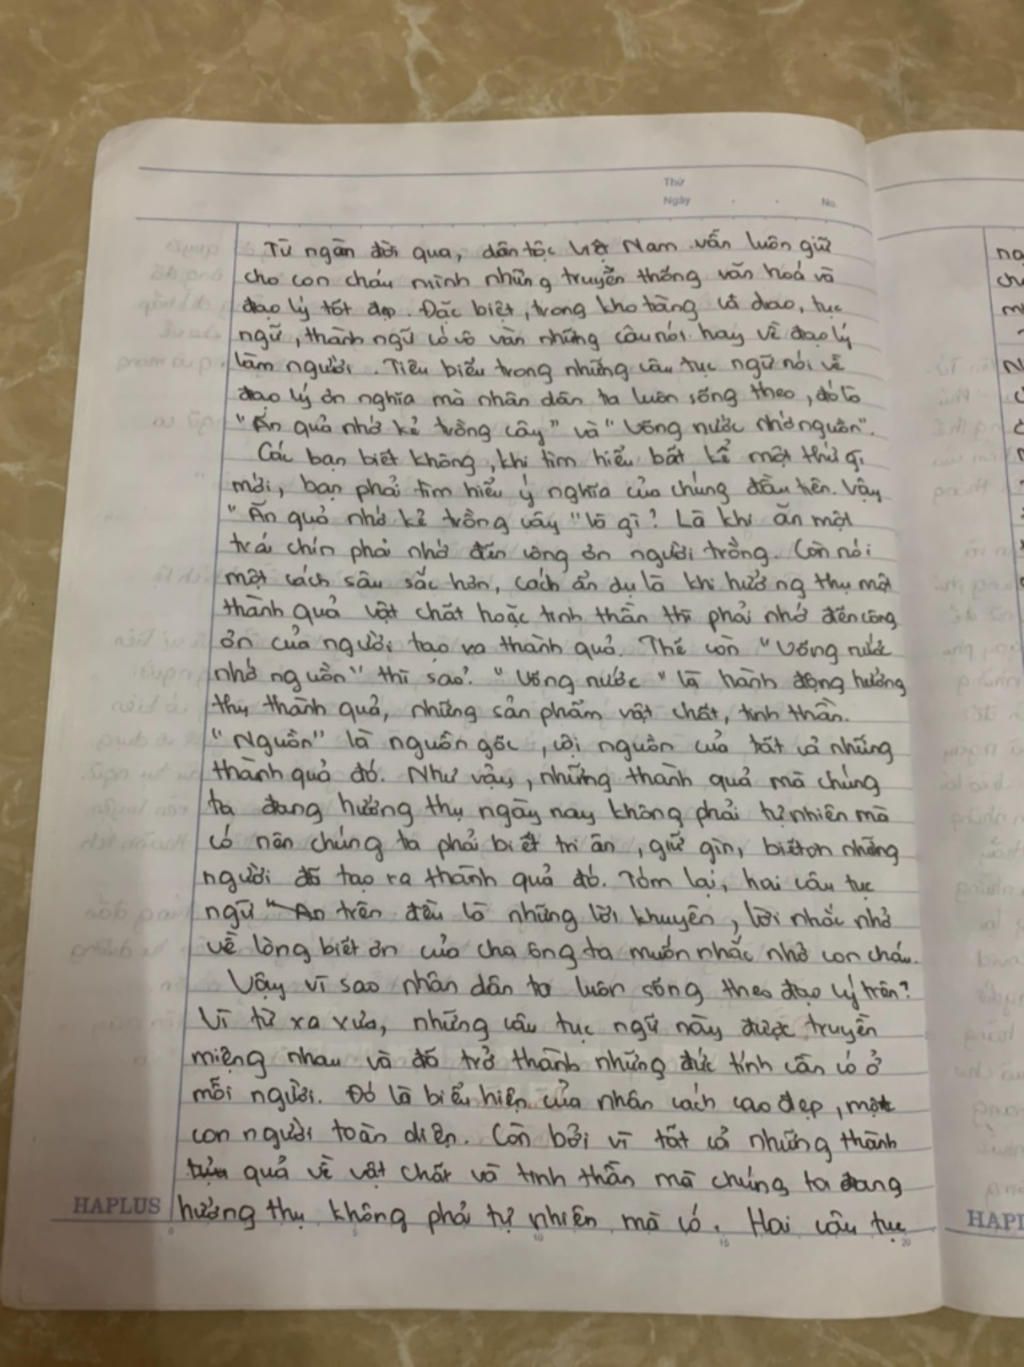 Thứ
Ngày . . No.
Từ ngàn đời qua, dân tộc Việt Nam vẫn luôn giữ
cho con cháu mình những truyền thống văn hoá và
đạo lý tốt đẹp. Đặc biệt, trong kho tàng ca dao, tục
ngữ, thành ngữ có vô vàn những câu nói hay về đạo lý
làm người. Tiêu biểu trong những câu tục ngữ nói về
đạo lý ơn nghĩa mà nhân dân ta luôn sống theo, đó là
"Ăn quả nhớ kẻ trồng cây" và "Uống nước nhớ nguồn".
Các bạn biết không, khi tìm hiểu bất kể một thứ gì
mới, bạn phải tìm hiểu ý nghĩa của chúng đầu tiên. Vậy
"Ăn quả nhớ kẻ trồng cây" là gì? Là khi ăn một
trái chín phải nhớ đến công ơn người trồng. Còn nói
một cách sâu sắc hơn, cách ẩn dụ là khi hưởng thụ một
thành quả vật chất hoặc tinh thần thì phải nhớ đến công
ơn của người tạo ra thành quả. Thế còn "Uống nước
nhớ nguồn" thì sao? "Uống nước" là hành động hưởng
thụ thành quả, những sản phẩm vật chất, tinh thần.
"Nguồn" là nguồn gốc, cội nguồn của tất cả những
thành quả đó. Như vậy, những thành quả mà chúng
ta đang hưởng thụ ngày nay không phải tự nhiên mà
có nên chúng ta phải biết tri ân, giữ gìn, biết ơn những
người đã tạo ra thành quả đó. Tóm lại, hai câu tục
ngữ trên đều là những lời khuyên, lời nhắc nhở
về lòng biết ơn của cha ông ta muốn nhắc nhở con cháu.
Vậy vì sao nhân dân ta luôn sống theo đạo lý trên?
Vì từ xa xưa, những câu tục ngữ này được truyền
miệng nhau và đã trở thành những đức tính cần có ở
mỗi người. Đó là biểu hiện của nhân cách cao đẹp, một
con người toàn diện. Còn bởi vì tất cả những thành
quả về vật chất và tinh thần mà chúng ta đang
HAPLUS hưởng thụ không phải tự nhiên mà có. Hai câu tục
5 10 15 20